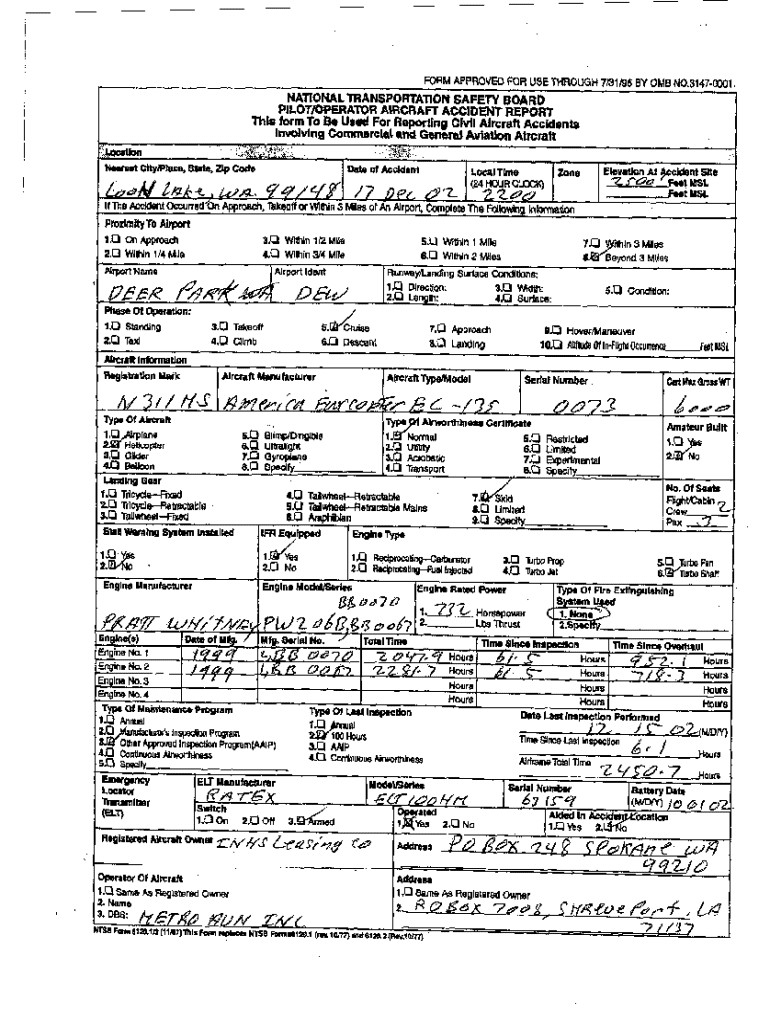 FORM APPROVED FOR USE THROUGH 7/31/95 BY OMB NO.3147-0001
NATIONAL TRANSPORTATION SAFETY BOARD
PILOT/OPERATOR AIRCRAFT ACCIDENT REPORT
This form To Be Used For Reporting Civil Aircraft Accidents
Involving Commercial and General Aviation Aircraft
Location
Nearest City/Place, State, Zip Code Date of Accident Local Time Zone Elevation At Accident Site
(24 HOUR CLOCK)
LOON LAKE, WA. 99148 17 Dec 02 2200 2500' Feet MSL
Feet MSL
If The Accident Occurred On Approach, Takeoff or Within 3 Miles of An Airport, Complete The Following Information
Proximity To Airport
1. On Approach 3. Within 1/2 Mile 5. Within 1 Mile 7. Within 3 Miles
2. Within 1/4 Mile 4. Within 3/4 Mile 6. Within 2 Miles 8. Beyond 3 Miles
Airport Name Airport Ident Runway/Landing Surface Conditions:
DEER PARK WA DEW 1. Direction: 3. Width: 5. Condition:
2. Length: 4. Surface:
Phase Of Operation:
1. Standing 3. Takeoff 5. Cruise 7. Approach 9. Hover/Maneuver
2. Taxi 4. Climb 6. Descent 8. Landing 10. Altitude Of In-Flight Occurrence Feet MSL
Aircraft Information
Registration Mark Aircraft Manufacturer Aircraft Type/Model Serial Number Cert Max Gross WT
N311HS America Eurocopter EC-135 0073 6000
Type Of Aircraft Type Of Airworthiness Certificate Amateur Built
1. Airplane 5. Blimp/Dirigible 1. Normal 5. Restricted 1. Yes
2. Helicopter 6. Ultralight 2. Utility 6. Limited 2. No
3. Glider 7. Gyroplane 3. Acrobatic 7. Experimental
4. Balloon 8. Specify 4. Transport 8. Specify
Landing Gear No. Of Seats
1. Tricycle—Fixed 4. Tailwheel—Retractable 7. Skid Flight/Cabin
2. Tricycle—Retractable 5. Tailwheel—Retractable Mains 8. Limited Crew 2
3. Tailwheel—Fixed 6. Amphibian 9. Specify Pax 3
Stall Warning System Installed IFR Equipped Engine Type
1. Yes 1. Yes 1. Reciprocating—Carburetor 3. Turbo Prop 5. Turbo Fan
2. No 2. No 2. Reciprocating—Fuel Injected 4. Turbo Jet 6. Turbo Shaft
Engine Manufacturer Engine Model/Series Engine Rated Power Type Of Fire Extinguishing
System Used
BB0070 1. 732 Horsepower 1. None
PRATT WHITNEY PW206B,BB0067 2. Lbs Thrust 2. Specify
Engine(s) Date of Mfg. Mfg. Serial No. Total Time Time Since Inspection Time Since Overhaul
Engine No. 1 1999 BB 0070 2047.9 Hours 61.5 Hours 952.1 Hours
Engine No. 2 1999 BB 0067 2281.7 Hours 61.5 Hours 718.3 Hours
Engine No. 3 Hours Hours Hours
Engine No. 4 Hours Hours Hours
Type Of Maintenance Program Type Of Last Inspection Date Last Inspection Performed
1. Annual 1. Annual 12 15 02 (M/D/Y)
2. Manufacturer's Inspection Program 2. 100 Hours Time Since Last Inspection
3. Other Approved Inspection Program(AAIP) 3. AAIP 6.1 Hours
4. Continuous Airworthiness 4. Continuous Airworthiness Airframe Total Time
5. Specify 2450.7 Hours
Emergency ELT Manufacturer Model/Series Serial Number Battery Date
Locator RATEX ELT100HM 63159 (M/D/Y) 10 01 02
Transmitter Switch Operated Aided In Accident Location
(ELT) 1. On 2. Off 3. Armed 1. Yes 2. No 1. Yes 2. No
Registered Aircraft Owner INHS Leasing Co Address PO BOX 248 SPOKANE WA
99210
Operator Of Aircraft Address
1. Same As Registered Owner 1. Same As Registered Owner
2. Name
3. DBS: METRO RUN INC 2. P.O BOX 7008, SHREVEPORT, LA
71137
NTSB Form 6120.1/2 (11/87) This Form replaces NTSB Forms 6120.1 (rev. 10/77) and 6120.2 (Rev. 10/77)